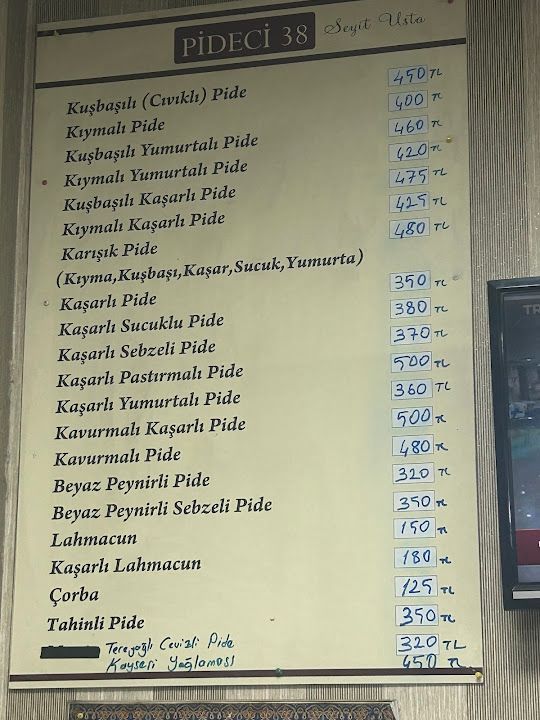 PİDECİ 38 Seyit Usta
Kuşbaşılı (Cıvıklı) Pide 450 TL
Kıymalı Pide 400 TL
Kuşbaşılı Yumurtalı Pide 460 TL
Kıymalı Yumurtalı Pide 420 TL
Kuşbaşılı Kaşarlı Pide 475 TL
Kıymalı Kaşarlı Pide 425 TL
Karışık Pide 480 TL
(Kıyma,Kuşbaşı,Kaşar,Sucuk,Yumurta)
Kaşarlı Pide 350 TL
Kaşarlı Sucuklu Pide 380 TL
Kaşarlı Sebzeli Pide 370 TL
Kaşarlı Pastırmalı Pide 500 TL
Kaşarlı Yumurtalı Pide 360 TL
Kavurmalı Kaşarlı Pide 500 TL
Kavurmalı Pide 480 TL
Beyaz Peynirli Pide 320 TL
Beyaz Peynirli Sebzeli Pide 350 TL
Lahmacun 150 TL
Kaşarlı Lahmacun 180 TL
Çorba 125 TL
Tahinli Pide 350 TL
Tereyağlı Cevizli Pide 320 TL
Kayseri Yağlaması 450 TL
TR